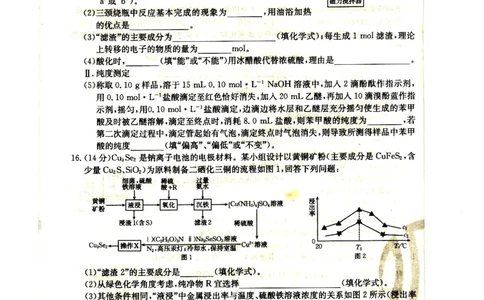 a 或 b”)。
磁力搅拌器
(2)三颈烧瓶中反应基本完成的现象为________,用油浴加热
的优点是________。
(3)“滤渣”的主要成分为________(填化学式);每生成 1 mol 滤渣,理论
上转移的电子的物质的量为________mol。
(4)酸化时,________(填“能”或“不能”)用冰醋酸代替浓硫酸,理由是________。
Ⅱ.纯度测定
(5)称取 0.10 g样品,溶于 15 mL 0.10 mol·L⁻¹ NaOH 溶液中,加入 2 滴酚酞作指示剂,
用 0.10 mol·L⁻¹盐酸滴定至红色恰好消失,加入 20 mL 乙醚,再加入 10 滴溴酚蓝作指
示剂,摇匀,用0.10 mol·L⁻¹盐酸滴定,边滴边将水层和乙醚层充分摇匀使生成的苯甲
酸及时被乙醚溶解,滴定至终点时,消耗 8.0 mL 盐酸,则苯甲酸的纯度为________,若
第二次滴定过程中,滴定管起始有气泡,滴定终点时气泡消失,则导致所测得样品中苯甲
酸的纯度________(填“偏高”、“偏低”或“不变”)。
16.(14 分)Cu₂Se₇ 是钠离子电池的电极材料。某小组设计以黄铜矿粉(主要成分是 CuFeS₂,含
少量 Cu₂S、SiO₂)为原料制备二硒化三铜的流程如图 1,回答下列问题:
细菌,硫酸铁溶液 稀硫酸+R 过量氨水
黄铜矿粉 液浸 氧化 沉铁 [Cu(NH₃)₄]SO₄溶液
浸渣1(含S) 滤渣2 稀硫酸
操作X Cu²⁺溶液
N₂,高压汞灯;冷却水,保持室温
图1
浸出率
20 T₁ T/℃
c₁
c₂
图2
(1)“滤渣 2”的主要成分是________(填化学式)。
(2)从绿色化学角度考虑,纯净物 R 宜选择________(填化学式)。
(3)其他条件相同,“液浸”中金属浸出率与温度、硫酸铁溶液浓度的关系如图 2 所示(浸出率